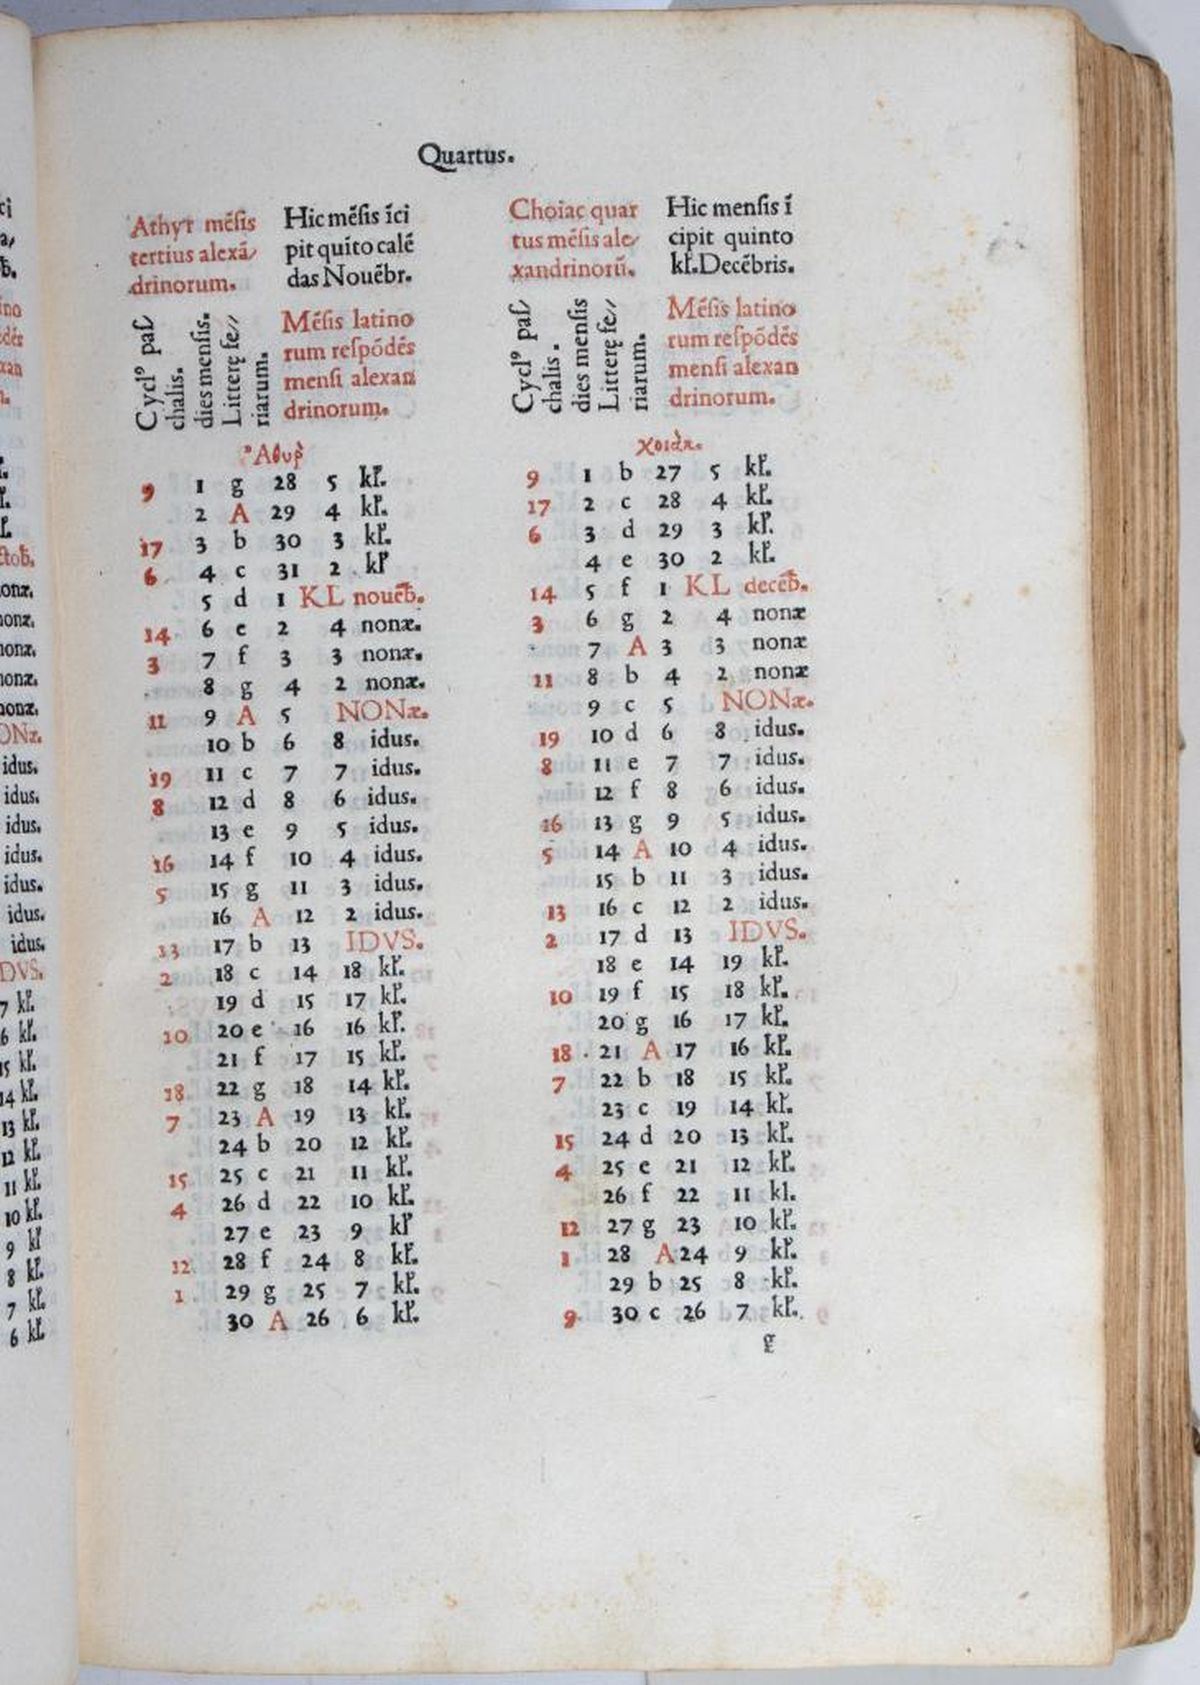 Quartus.
Athyr mēsis
tertius alexā/
drinorum.
Hic mēsis īci
pit quīto calē
das Nouēbr.
Cycl⁹ paſ/
chalis.
dies mensis.
Litterę fe//
riarum.
Mēsis latino
rum reſpōdēs
menſi alexan
drinorum.
Ἀθυρ̀
9 1 g 28 5 kł.
2 A 29 4 kł.
17 3 b 30 3 kł.
6 4 c 31 2 kł
5 d 1 KL nouēb.
14 6 e 2 4 nonæ.
3 7 f 3 3 nonæ.
8 g 4 2 nonæ.
11 9 A 5 NONæ.
10 b 6 8 idus.
19 11 c 7 7 idus.
8 12 d 8 6 idus.
13 e 9 5 idus.
16 14 f 10 4 idus.
5 15 g 11 3 idus.
16 A 12 2 idus.
13 17 b 13 IDVS.
2 18 c 14 18 kł.
19 d 15 17 kł.
10 20 e 16 16 kł.
21 f 17 15 kł.
18 22 g 18 14 kł.
7 23 A 19 13 kł.
24 b 20 12 kł.
15 25 c 21 11 kł.
4 26 d 22 10 kł.
27 e 23 9 kł
12 28 f 24 8 kł.
1 29 g 25 7 kł.
30 A 26 6 kł.
Choiac quar
tus mēsis ale/
xandrinorū.
Hic mensis ī
cipit quinto
kł. Decēbris.
Cycl⁹ paſ/
chalis.
dies mensis
Litterę fe//
riarum.
Mēsis latino
rum reſpōdēs
menſi alexan
drinorum.
χοιὰκ.
9 1 b 27 5 kł.
17 2 c 28 4 kł.
6 3 d 29 3 kł.
4 e 30 2 kł.
14 5 f 1 KL decēb.
3 6 g 2 4 nonæ
7 A 3 3 nonæ
11 8 b 4 2 nonæ
9 c 5 NONæ.
19 10 d 6 8 idus.
8 11 e 7 7 idus.
12 f 8 6 idus.
16 13 g 9 5 idus.
5 14 A 10 4 idus.
15 b 11 3 idus.
13 16 c 12 2 idus.
2 17 d 13 IDVS.
18 e 14 19 kł.
10 19 f 15 18 kł.
20 g 16 17 kł.
18 21 A 17 16 kł.
7 22 b 18 15 kł.
23 c 19 14 kł.
15 24 d 20 13 kł.
4 25 e 21 12 kł.
26 f 22 11 kl.
12 27 g 23 10 kł.
1 28 A 24 9 kł.
29 b 25 8 kł.
9 30 c 26 7 kł.
g